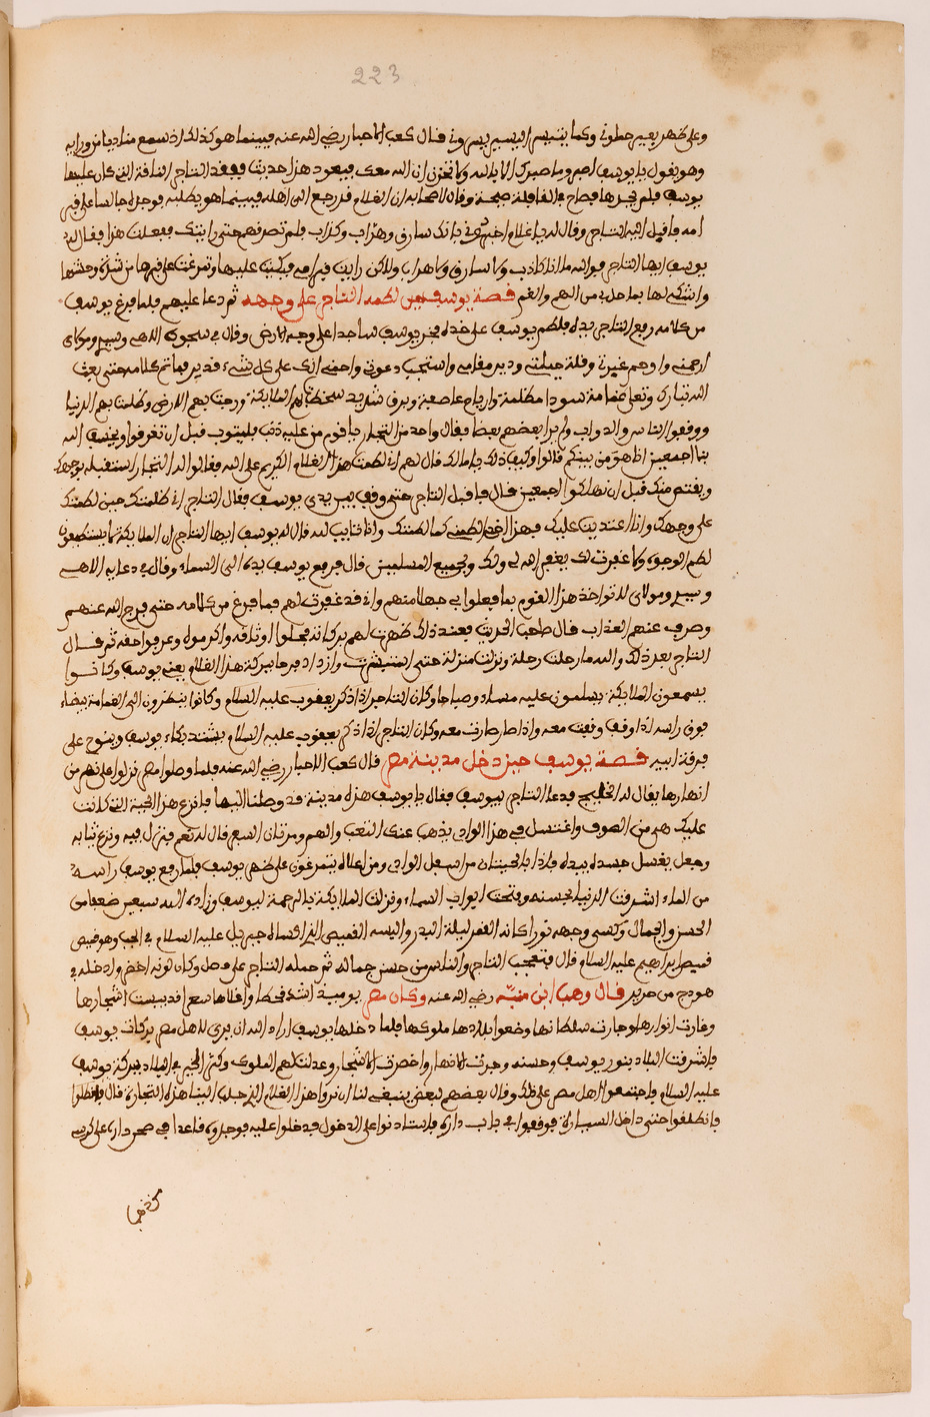 223
وعلى ظهر بعير حملوني وكما يتيسر اليسير يسروني قال كعب الاحبار رضي الله عنه فبينما هو كذلك اذ سمع مناديا من ورايه
وهو يقول يا يوسف اصبر وما صبرك الا بالله ولا تحزن ان الله معك فيعود هذا حديث ففقد التاجر الناقة التي كان عليها
يوسف فلم يجدها فصاح في القافلة صيحة وقال لاصحابه ان الغلام قد رجع الى اهله فبينما هو يطلبه فوجده جالسا على قبر
امه فاقبل اليه التاجر وقال له يا غلام اخبروني بانك سارق وهراب وكذاب فلم نصدقهم حتى رايتك ففعلت هذا فقال له
يوسف ايها التاجر فوالله ما انا كاذب ولا سارق ولا هراب ولاكن رايت قبر امي فبكيت عليها وتمرغت على قبرها من شدة وحشتها
واشتكي لها بما حل بي من الهم والغم قصة يوسف حين لطمه التاجر على وجهه ثم دعا عليهم فلما فرغ يوسف
من كلامه رفع التاجر يده فلطم يوسف على خده فخر يوسف ساجدا على وجه الارض وقال في سجوده الاهي وسيدي ومولاي
ارحمني وارحم غيرتي وقلة حيلتي ودبر مقامي واستجب دعوتي وارحمني انك على كل شيء قدير فما تم كلامه حتى بعث
الله تبارك وتعلى غمامة سودا مظلمة وارياح عاصفة وبرق شديد سخطت لهم الملايكة ورجت بهم الارض وظلمت بهم الدنيا
ووقفوا الناس والدواب ولم يرا بعضهم بعضا فقال واحد من التجار يا قوم من عليه ذنب فليتوب قبل ان تغرقوا ويخسف الله
بنا اجمعين اظهر من بينكم قالوا وكيف ذلك يا مالك قال لهم اني لطمت هذا الغلام الكريم على الله فقالوا له التجار استقبله بوجهك
ويقتص منك قبل ان نهلكوا اجمعين قال فاقبل التاجر حتى وقف بين يدي يوسف فقال التاجر اني ظلمتك حين لطمتك
على وجهك وانا اعتديت عليك فهذا الخد الطمني كما لطمتك وانا تايب لله قال له يوسف ايها التاجر ان الملايكة لا يستطيعون
لطم الوجوه ولا غفرت لك يغفر الله لي ولك ولجميع المسلمين قال فرفع يوسف يده الى السماء وقال في دعايه الاهي
وسيدي ومولاي لا تواخذ هذا القوم بما فعلوا بي جهلا منهم واني قد غفرت لهم فما فرغ من كلامه حتى فرج الله عنهم
وصرف عنهم العذاب قال صاحب الحديث فعند ذلك ظهرت لهم بركاته فحلوا اوثاقه واكرموه وعرفوا حقه ثم قال
التاجر بعد ذلك والله ما رحلت رحلة ونزلت منزلة حتى استبشرت وازداد فرحا ببركة هذا الغلام يعني يوسف وكانوا
يسمعون الملايكة يسلمون عليه مساء وصباحا وكان التاجر اذا ذكر يعقوب عليه السلام وكانوا ينظرون الى الغمامة بيضاء
فوق راسه اذا وقف وقفت معه واذا صار صارت معه وكان التاجر اذا ذكر يعقوب عليه السلام يشتد بكاء يوسف وينوح على
فرقة ابيه قصة يوسف حين دخل مدينة مصر قال كعب الاحبار رضي الله عنه فلما وصلوا مصر نزلوا على نهر من
انهارها يقال له الخليج فدعا التاجر ليوسف فقال يا يوسف هذه مدينة قد وصلنا اليها فانزع هذا الجبة التي كانت
عليك هي من الصوف واغتسل في هذا الوادي يذهب عنك التعب والهم ومزقان السفر قال له نعم فنزل فيه ونزع ثيابه
وجعل يغسل جسده بيده فاذا بالحيتان من اسفل الوادي ومن اعلاه يتمرغون على ظهر يوسف فلما رفع يوسف راسه
من الماء اشرقت الدنيا لحسنه وفتحت ابواب السماء ونزلت الملايكة بالرحمة ليوسف وزاده الله سبعين ضعفا من
الحسن والجمال وكسى وجهه نورا كانه القمر ليلة البدر والبسه القميص الذي اكساه جبريل عليه السلام في الجب وهو قميص
قميص ابراهيم عليه السلام قال فتعجب التاجر والناس من حسن جماله ثم حمله التاجر على جمل وكان لونه اخضر وادخله في
هودج من حرير قال وهب ابن منبه رضي الله عنه وكان مصر يوميذ اشد قحطا واغلاها سعرا قد يبست اشجارها
وغارت انوارها وجارت سلطانها وضعوا بلادها ملوكها فلما دخلها يوسف اراد الله ان يري لاهل مصر بركات يوسف
فاشرقت البلاد بنور يوسف وحسنه وجرت الانهار واخضرت الاشجار وعدلت لهم الملوك وكثر الخير في البلاد ببركة يوسف
عليه السلام فاجتمعوا اهل مصر على ذلك وقال بعضهم لبعض ينبغي لنا ان نروا هذا الغلام الذي جلبه الينا هذه التجارة قال فانطلقوا
فانطلقوا حتى داخل السيارة فوقفوا في باب داره فاستاذنوا على الدخول فدخلوا عليه فوجدوه قاعدا في صحن داره على كرسي